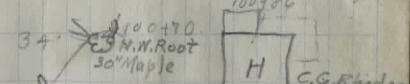 34
100+70
N.W. Root
30" Maple
H
C.G.